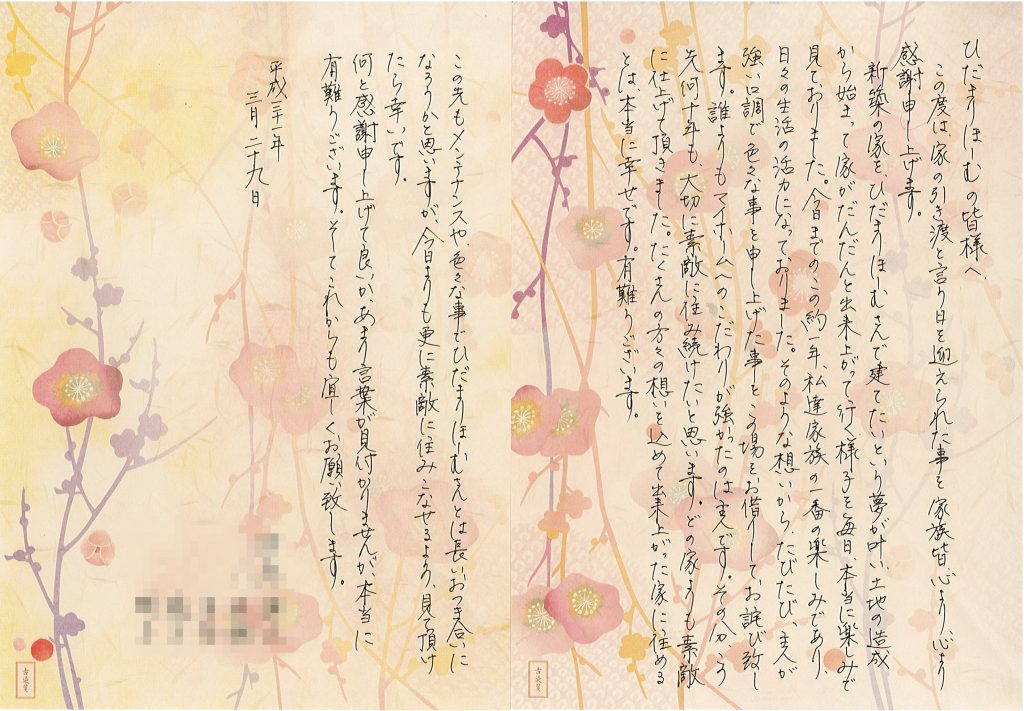 ひだまりほーむの皆様へ、
この度は家の引き渡と言う日を迎えられた事を家族皆、心より心より
感謝申し上げます。
新築の家を、ひだまりほーむさんで建てたいという夢が叶い土地の造成
から始まって家がだんだんと出来上がって行く様子を毎日、本当に楽しみで
見ておりました。今日までの、この約一年私達家族の一番の楽しみであり、
日々の生活の活力になっておりました。そのような想いから、たびたび、主人が
強い口調で色々な事を申し上げた事を、この場をお借りしてお詫び致し
ます。誰よりもマイホームへのこだわりが強かったのは主人です。その分、こう
先何十年も、大切に素敵に住み続けたいと思います。どの家よりも素敵
に仕上げて頂きました。たくさんの方々の想いを込めて出来上がった家に住める
とは本当に幸せです。有難うございます。
この先もメンテナンスや、色々な事でひだまりほーむさんとは長いおつき合いに
なろうかと思いますが、今日よりも更に素敵に住みこなせるよう、見て頂け
たら幸いです。
何と感謝申し上げて良いか、あまり言葉が見付かりませんが、本当に
有難うございます。そしてこれからも宜しくお願い致します。
平成二十一年
三月二十九日